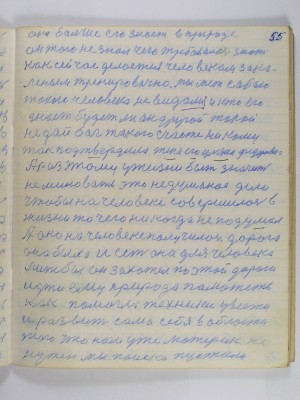 55
она больше его знает в природе
он того не знал чего требовалось знать
как сейчас делается человеком зака-
леным тренировачно мы нет сабою
такого человека не видали и кто его
знает будет ли он другой такой
не дай бог такого счастья никому
так подтвердила
А раз этому у жизни быть значит
не миновать это недуманое дело
чтобы на человеке совершилось в
жизни то чего никогда не подумал
А оно на человеке получилось дорога
она была и есть она для человека
лишь бы он захотел по этой дороги
идти ему природа
как помогла технике увезти
и развить сама себя в область
что это нам уже материк не
нужен мы поиски пустили